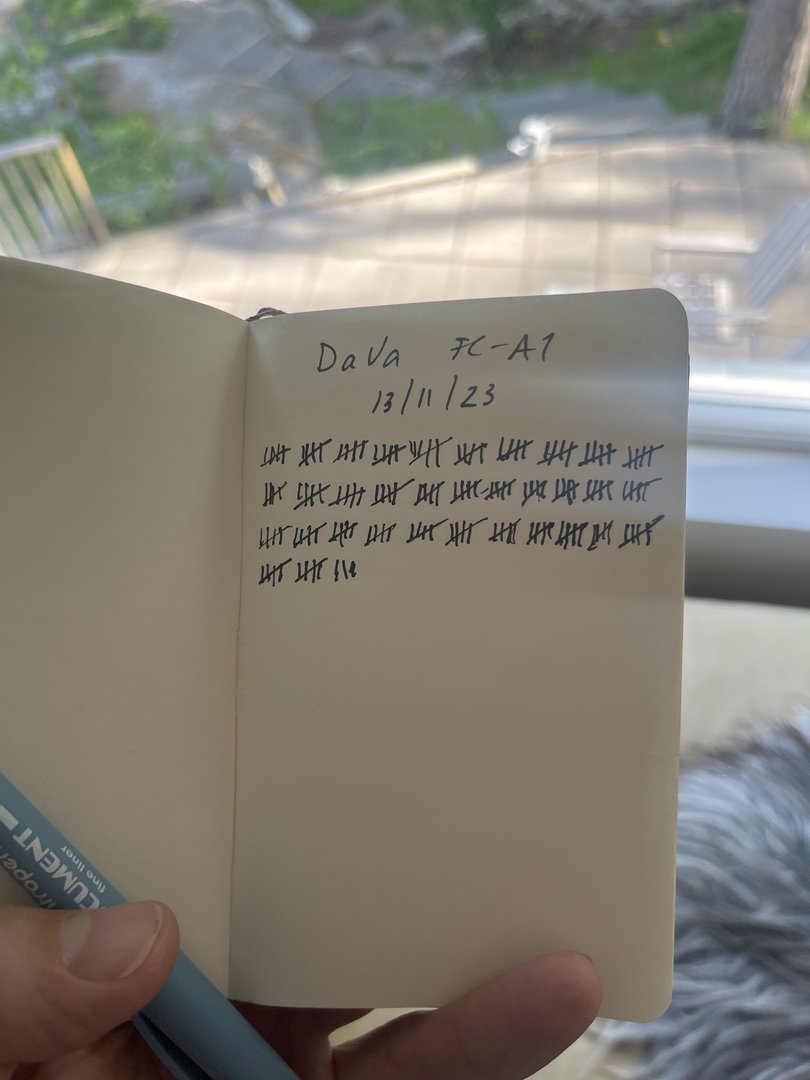 DaVa FC-A1
13/11/23
CUMENT
fine liner